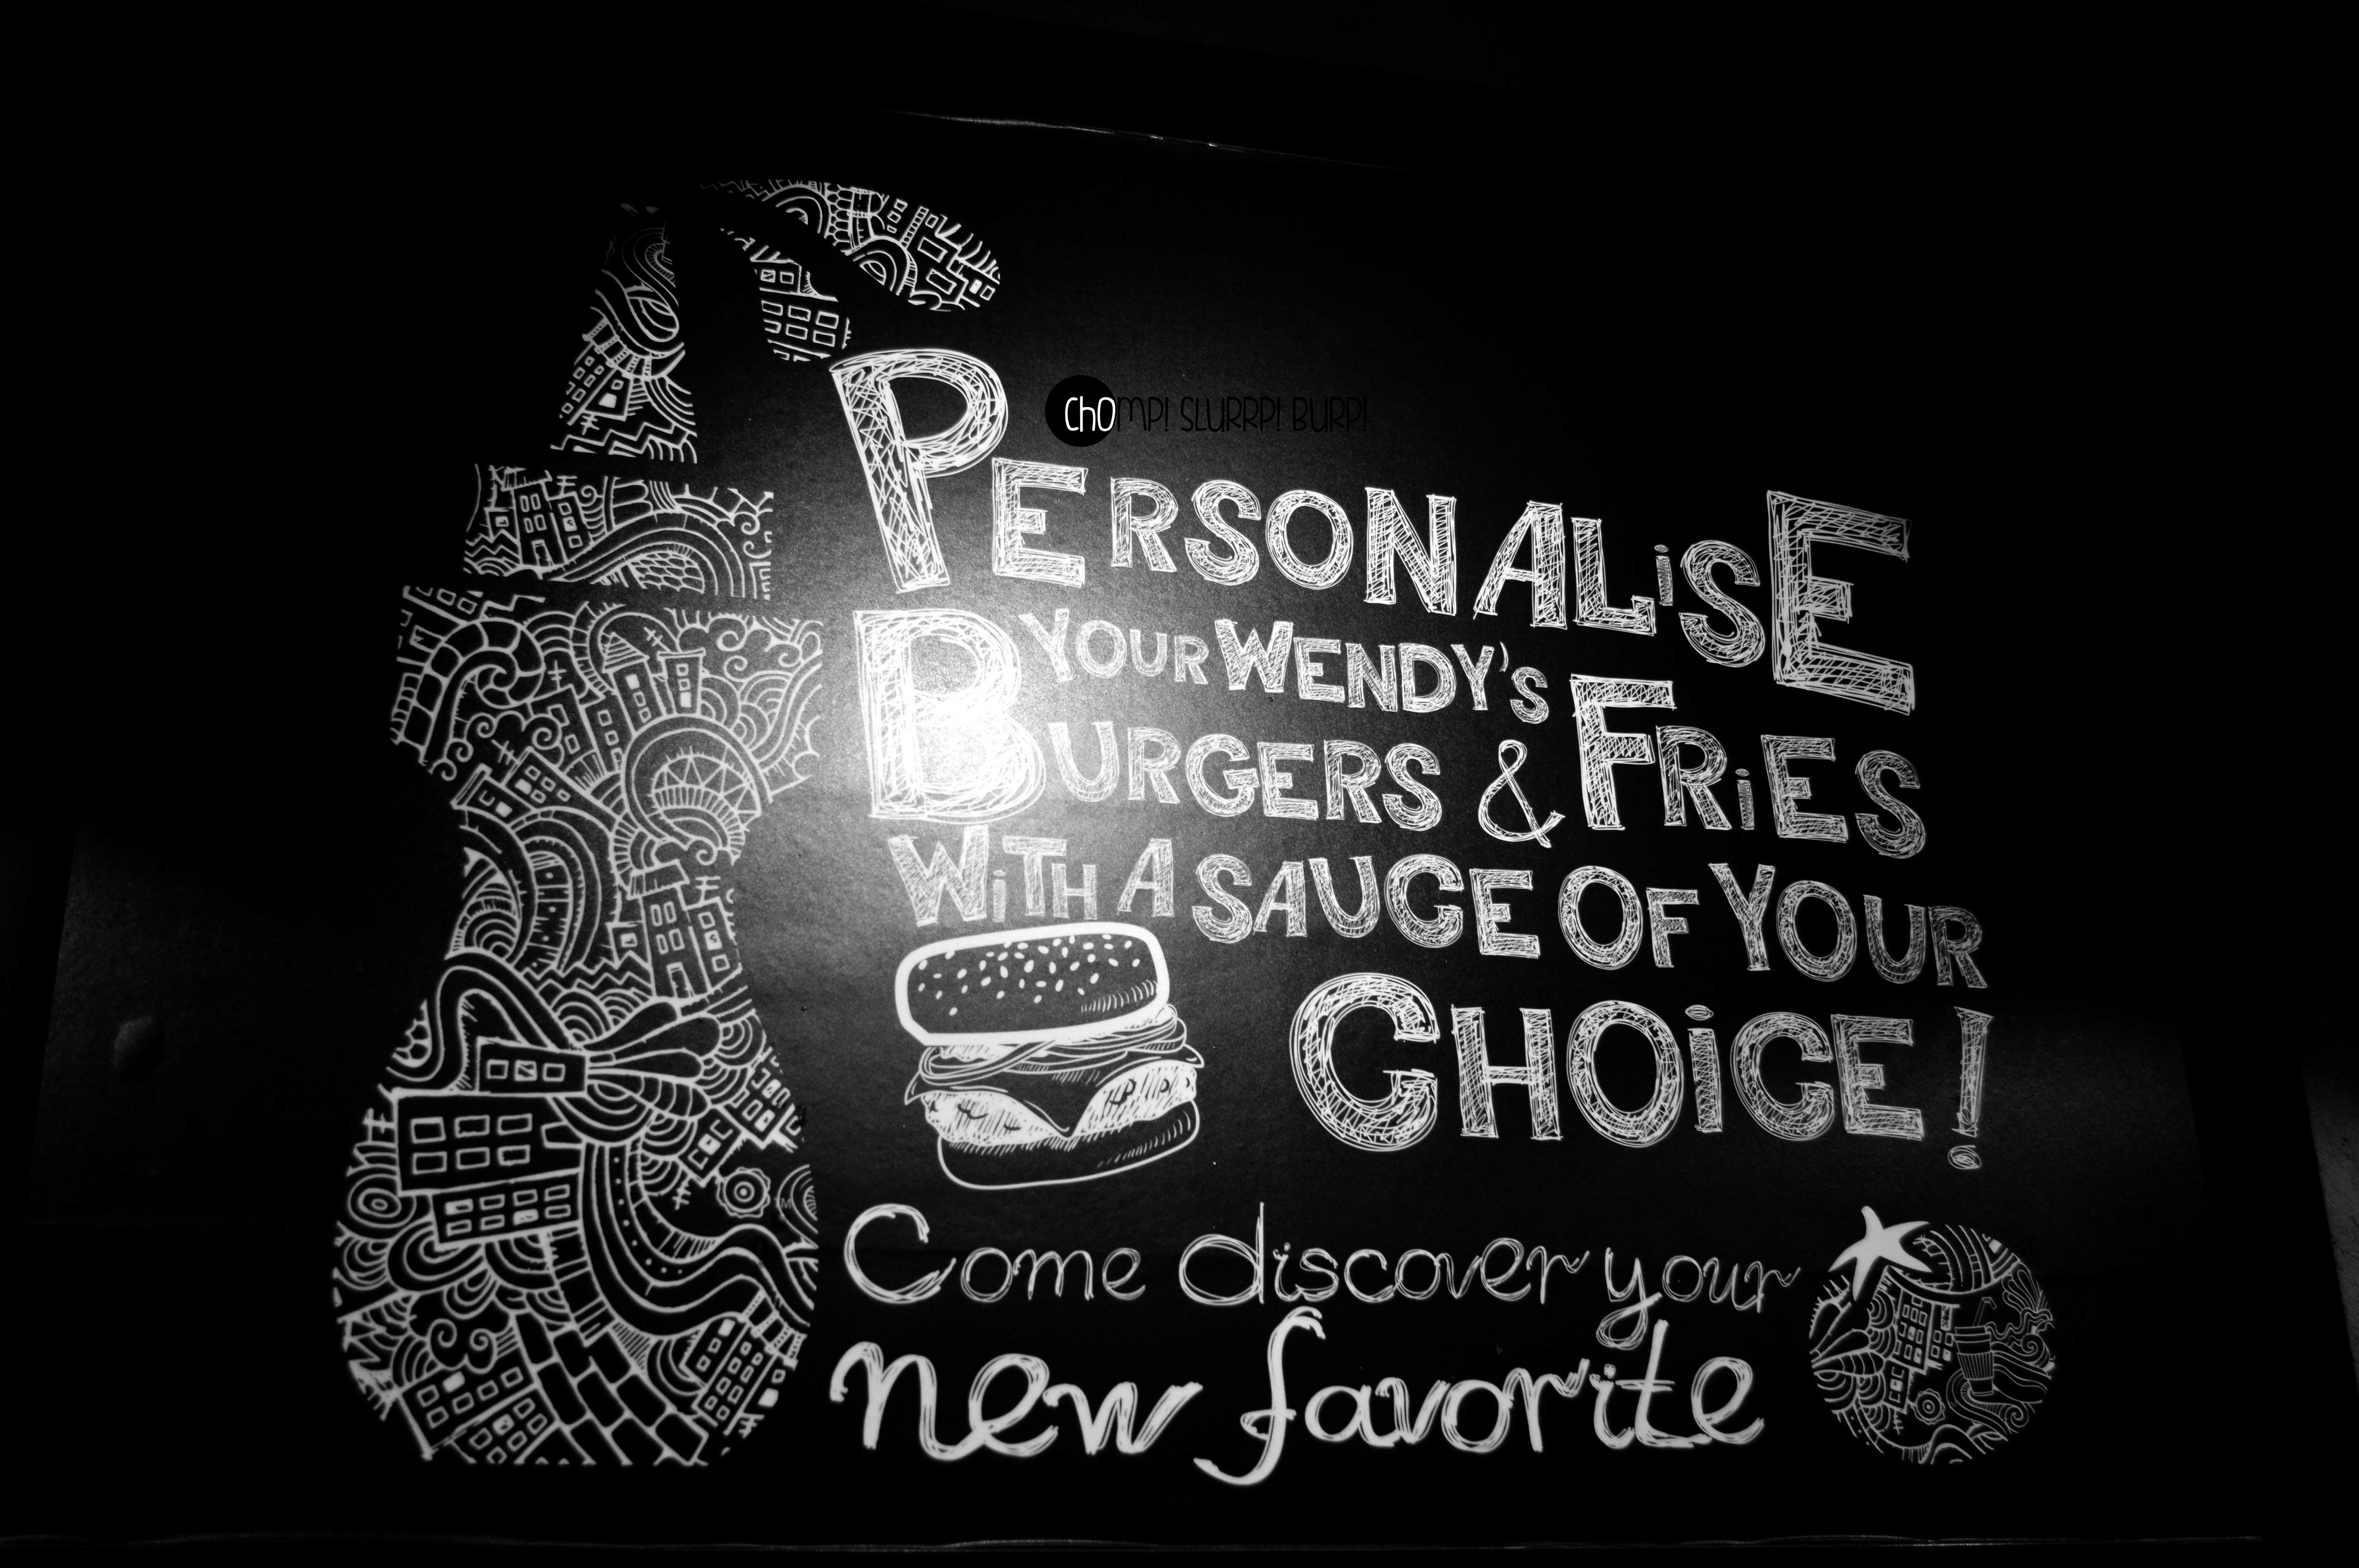 chOMP! SLURRP! BURP!
PERSONALiSE
YOUR WENDY'S
BURGERS & FRiES
WiTH A SAUCE OF YOUR
CHOiCE!
TM
Come discover your
new favorite